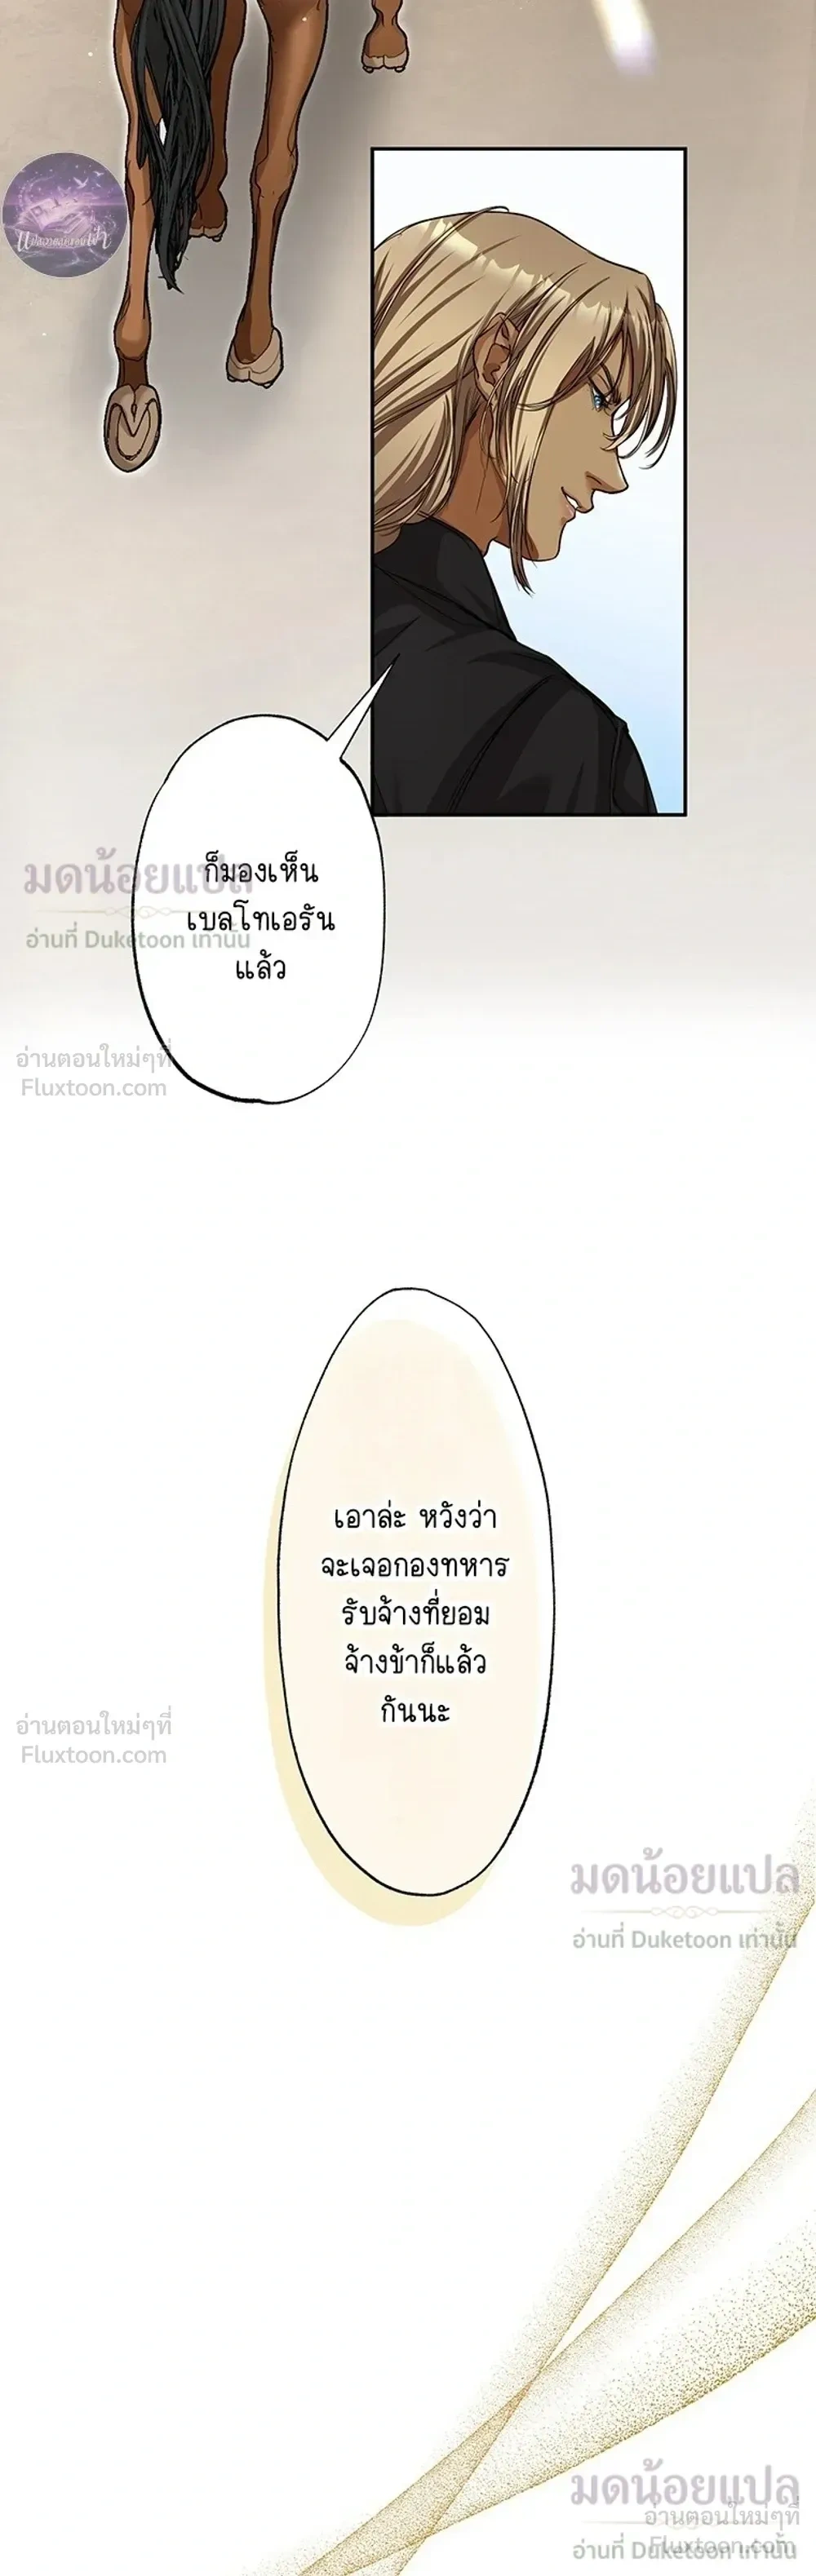 ก็มองเห็น
เบลโทเอรัน
แล้ว
มดน้อยแปล
อ่านที่ Duketoon เท่านั้น
อ่านตอนใหม่ๆที่
Fluxtoon.com
เอาล่ะ หวังว่า
จะเจอกองทหาร
รับจ้างที่ยอม
จ้างข้าก็แล้ว
กันนะ
อ่านตอนใหม่ๆที่
Fluxtoon.com
มดน้อยแปล
อ่านที่ Duketoon เท่านั้น
มดน้อยแปล
อ่านตอนใหม่ๆที่
Fluxtoon.com
อ่านที่ Duketoon เท่านั้น